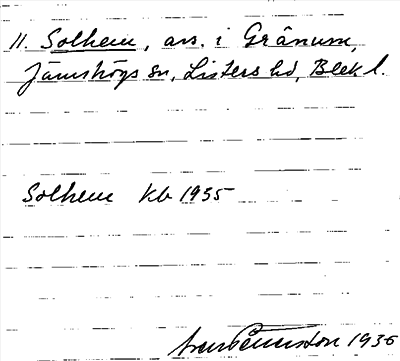 11. Solhem, avs. i Gränum,
Jämshögs sn, Listers hd, Blek l.
Solhem Kb 1935
1936